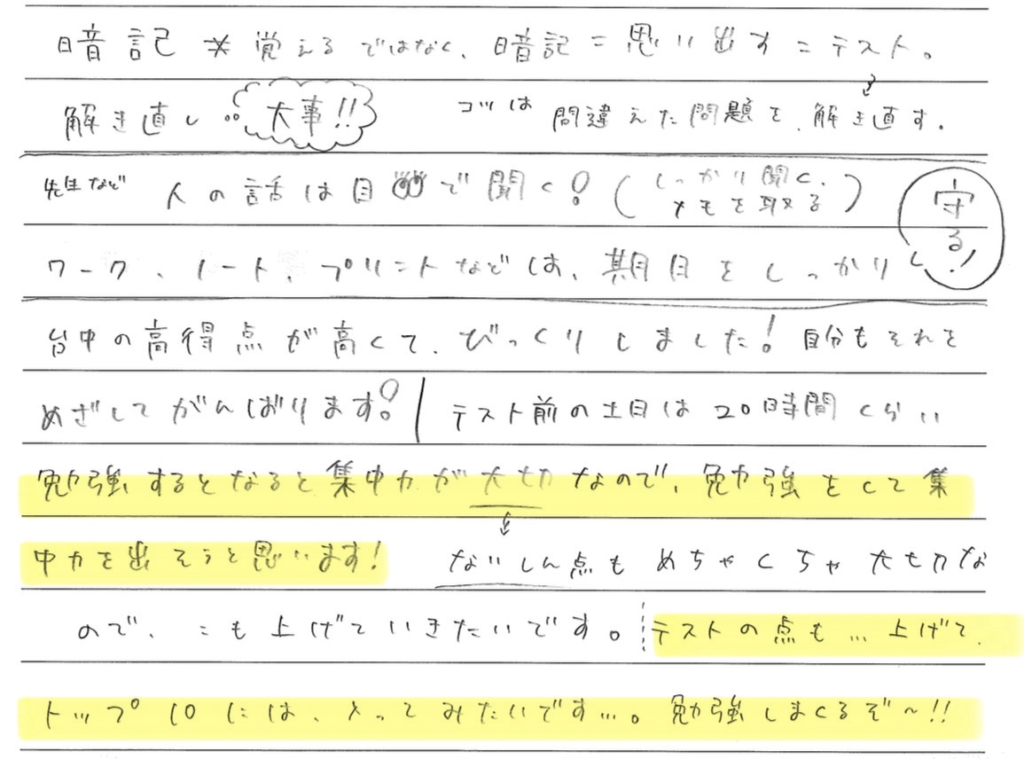 暗記≠覚えるではなく、暗記=思い出す=テスト。
解き直し… 大事!! コツは 問違えた問題を、解き直す。
先生など 人の話は目で聞く! (しっかり聞く、メモを取る)
ワーク、ノート、プリントなどは、期日をしっかり 守る!
台中の高得点が高くて、びっくりしました! 自分もそれを
めざしてがんばります! テスト前の土日は20時間くらい
勉強するとなると集中力が大切なので、勉強をして集
中力を出そうと思います! ないしん点もめちゃくちゃ大切な
ので、こも上げていきたいです。 テストの点も…上げて、
トップ10には、とってみたいです…。勉強しまくるぞ~!!